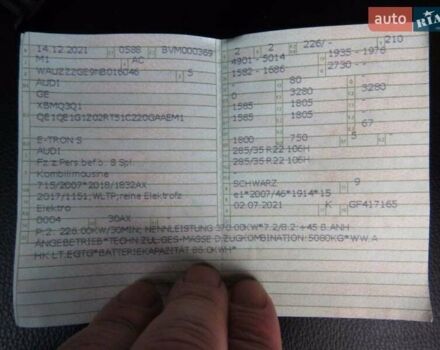 auto RIA
14.12.2021 0588 BVM000369
M1 AC
WAUZZZGE9NB016046 5
AUDI
GE
XBMQ3Q1
QE1QE1G1Z02RT51C220GAAEM1
E-TRON S
AUDI
Fz.z.Pers.bef.b. 8 Spl.
Kombilimousine
715/2007*2018/1832AX
2017/1151;WLTP;reine Elektrofz
Elektro
0004 30AX
2 2 226/- 210
4901 - 5014 1935 - 1976
1582 - 1686 2730 -
- 80 -
0 3280 3280
1585 1805 -
1585 1805 -
67
1800 750 5
285/35 R22 106H
285/35 R22 106H
SCHWARZ 9
e1*2007/46*1914*15
02.07.2021 K GF417165
P.2: 226.00KW/30MIN; NENNLEISTUNG 370.00KW*7.2/8.2: +45 B.ANH
ÄNGEBETRIEB*TECHN.ZUL.GES-MASSE D.ZUGKOMBINATION: 5080KG*WW.A
HK LT.EGTG*BATTERIEKAPAZITÄT 86.0KWH*